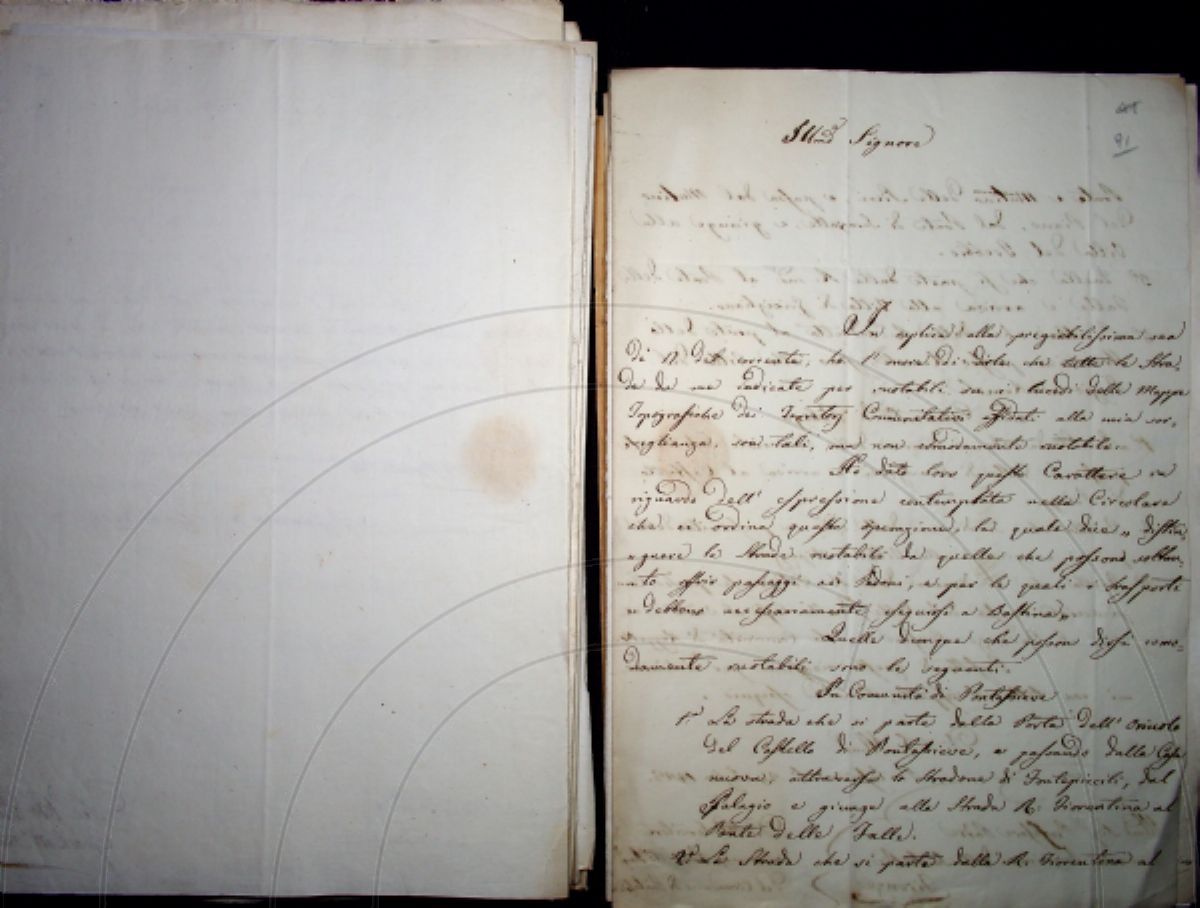 91
Ill.mo Signore
In replica alla pregiatissima sua
de 12 del corrente, ho l'onore di dirle che tutte le Stra,
de da me indicate per rotabili su i lucidi delle Mappe
Topografiche dei Territorj Comunitativi affidati alla mia sor,
veglianza, son tali, ma non comodamente rotabili.
Ho dato loro questo Carattere in
riguardo dell' espressione contemplata nella Circolare
che ci ordina questa operazione, la quale dice „ distin,
„ guere le Strade rotabili da quelle che possono soltan,
„ to offrir passaggi ai Pedoni, e per le quali i trasporti
„ debbono necessariamente eseguirsi a Bastina „.
Quelle dunque che posson dirsi como,
damente rotabili sono le seguenti.
In Comunità di Pontassieve
1.a La strada che si parte dalla Porta dell' Oriuolo
del Castello di Pontassieve, e passando dalla Casa
nuova, attraversa lo Stradone di Fontepiccili, dal
Palagio e giunge alla Strada R. Fiorentina al
Ponte delle Falle.
2.a La Strada che si parte dalla R. Fiorentina al